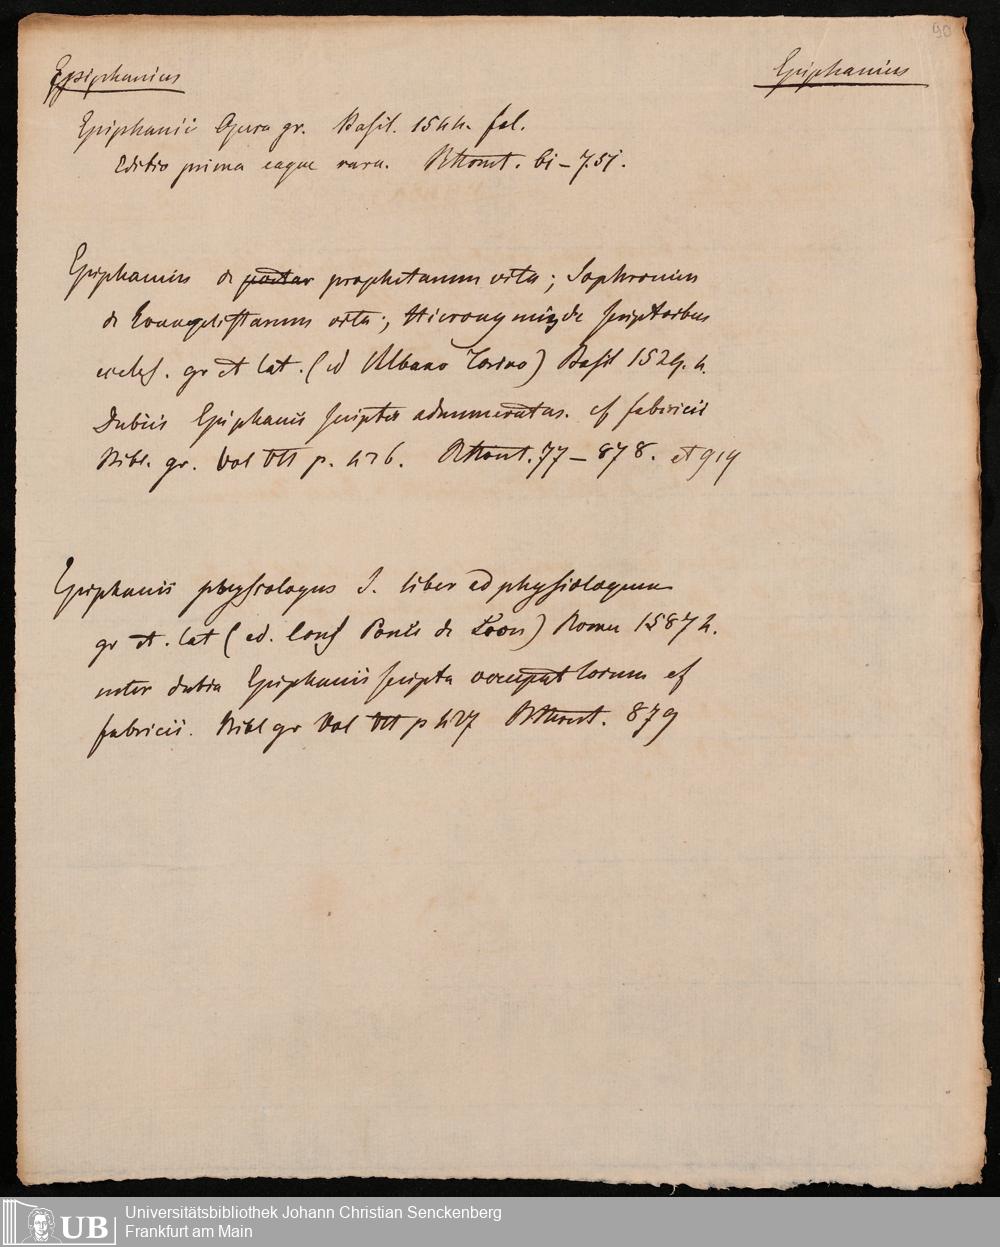 90
Epiphanius
Epiphanius
Epiphanii Opera gr. Basil. 1544. fol.
Editio prima eaque rara. Bi – 751.
Epiphanius de prophetarum vita; Sophronius
de Evangelistarum vita; Hieronymus de scriptoribus
eccles. gr et lat. (ed Albano Torino) Basil 1529. 4.
Dubiis Epiphanii scriptis adnumeratus. cf Fabricii
Bibl. gr. Vol VII p. 426. 77 – 878. et 919
Epiphanii physiologus S. liber ad physiologum
gr et. lat (ed. Cons Ponce de Leon) Romae 1587 4.
inter dubia Epiphanii scripta occupat locum cf
Fabricii. Bibl gr Vol VII p 427 879
UB
Universitätsbibliothek Johann Christian Senckenberg
Frankfurt am Main